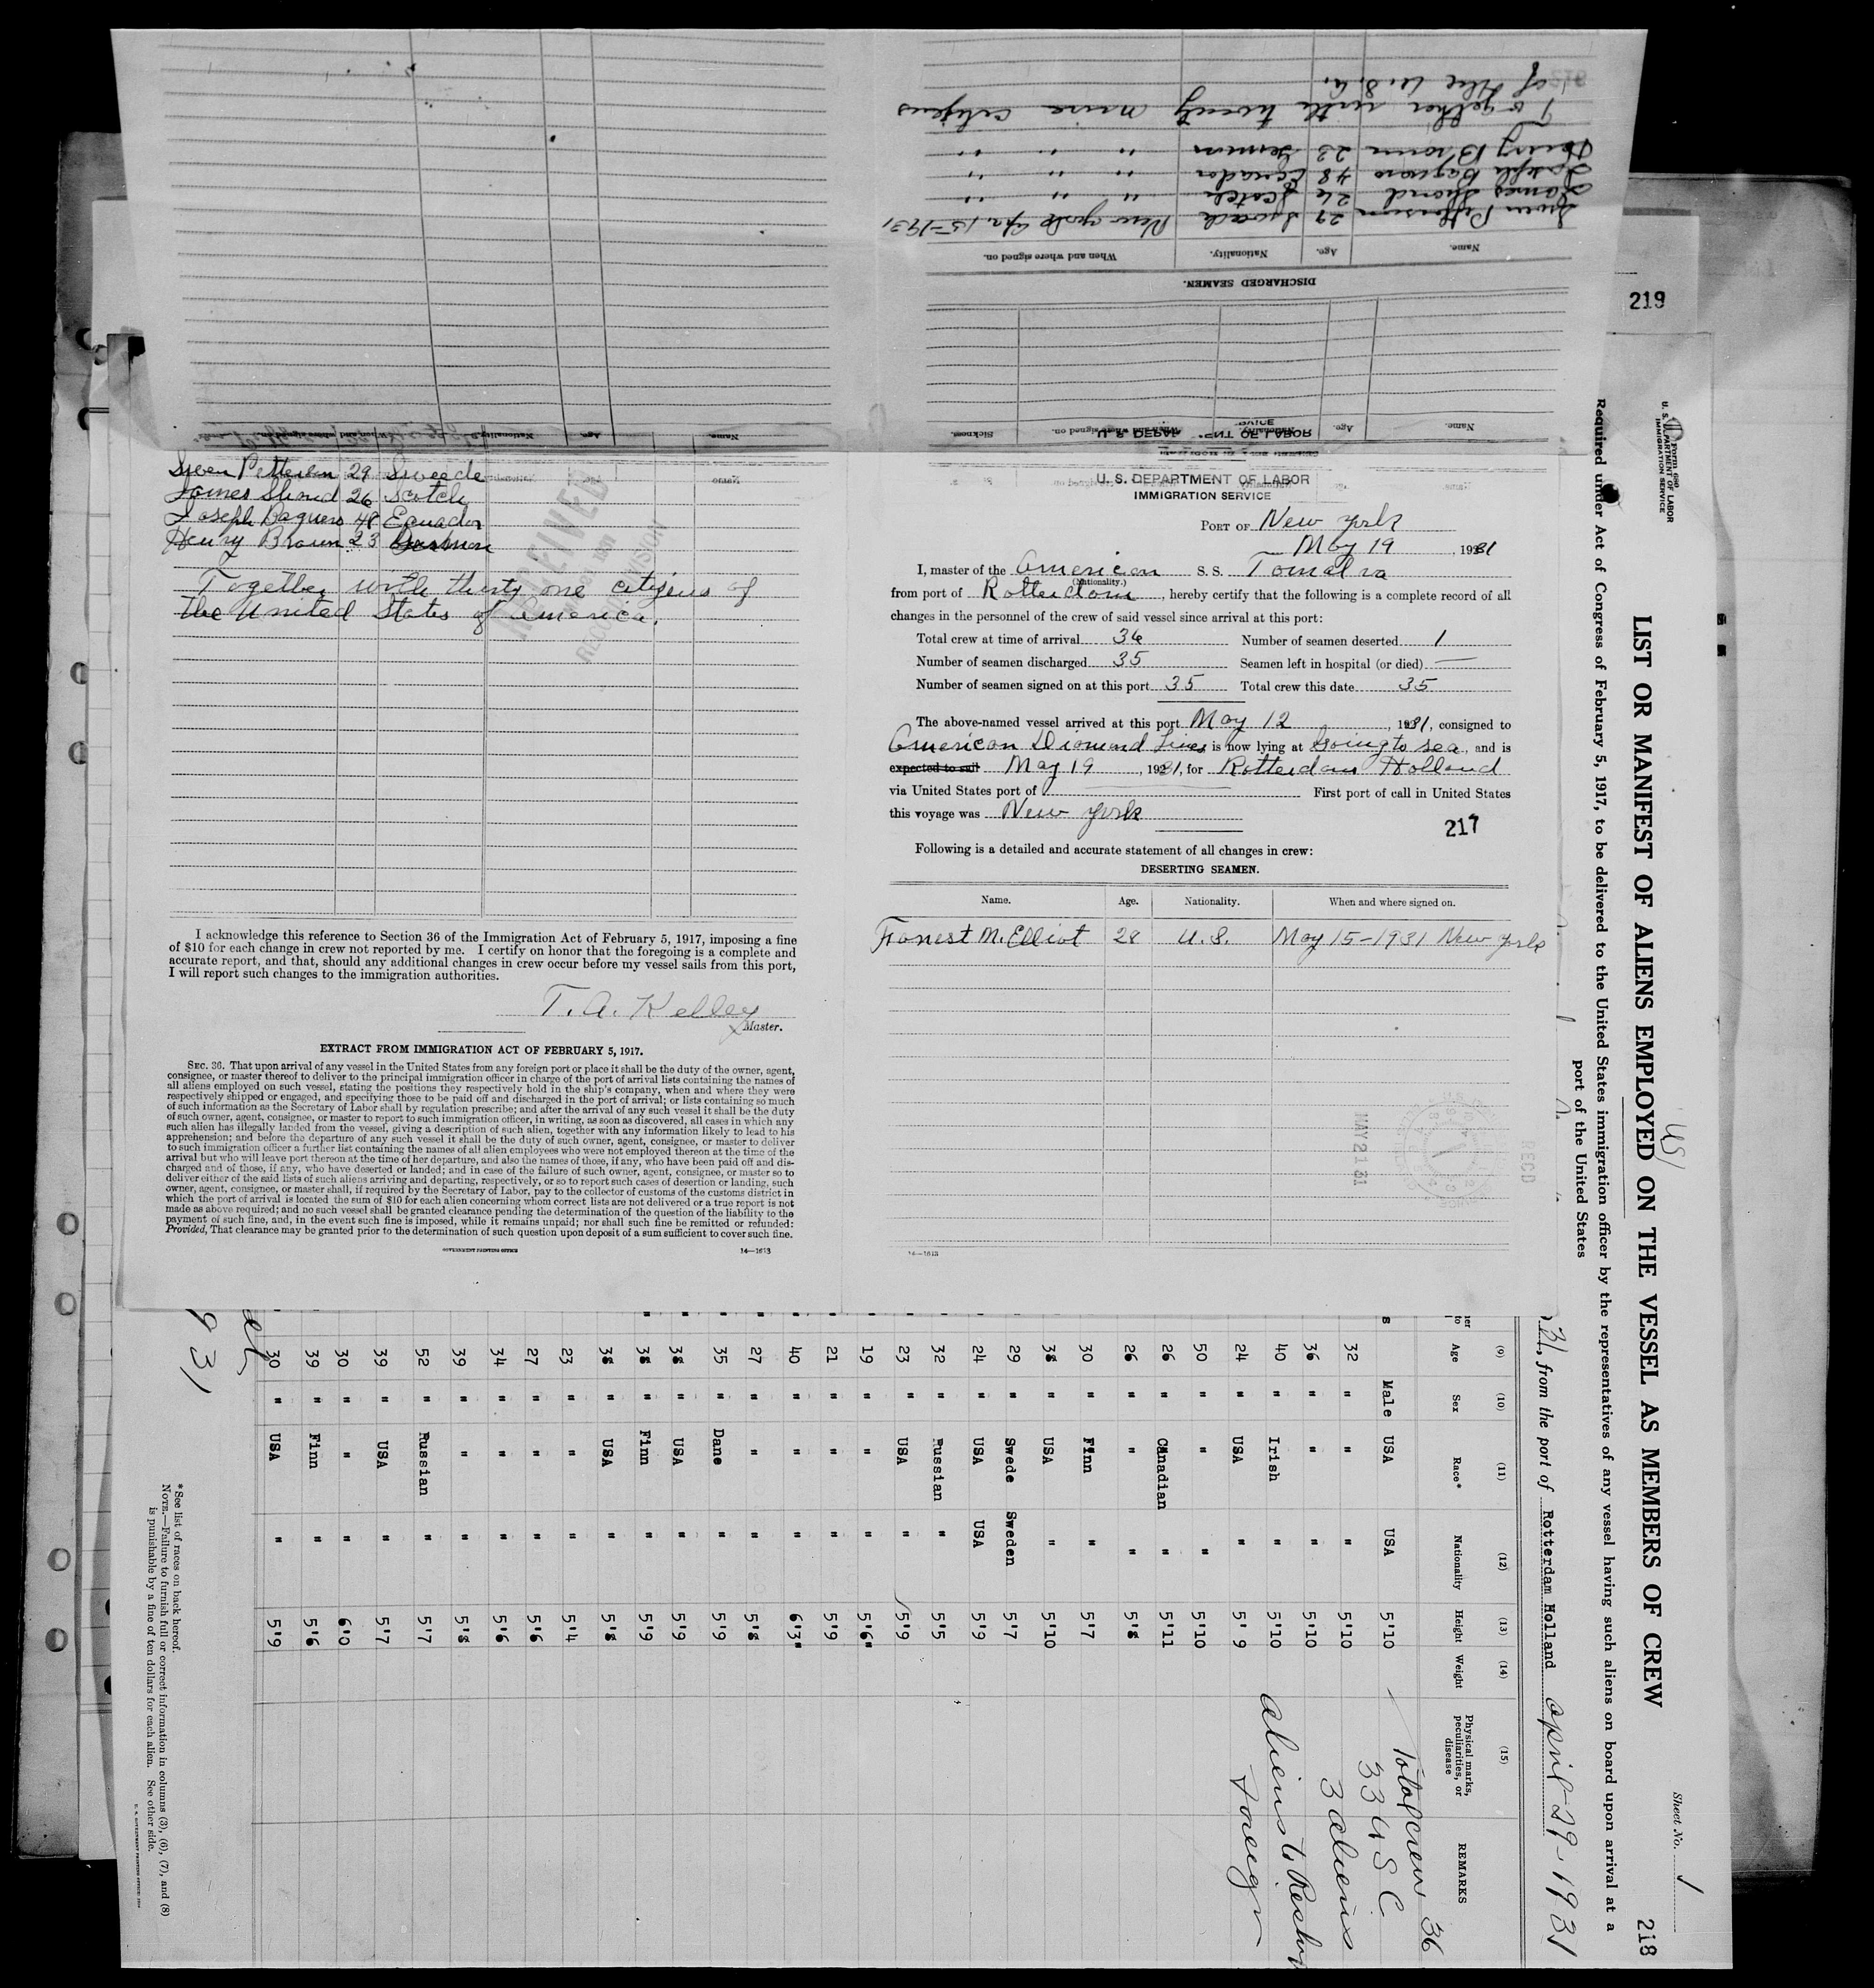 of the U.S.A.
Together with twenty nine citizens
Henry Brown 23 German " " "
Joseph Baquero 48 Ecuador " " "
James Shand 26 Scotch " " "
Swen Petterson 29 Swede New York Apr 15-1931
Name. Age. Nationality. When and where signed on.
DISCHARGED SEAMEN.
Name. Age. Nationality. When and where signed on. Sickness.
Name. Age. Nationality. When and where signed on.
Swen Petterson 29 Sweede
James Shand 26 Scotch
Joseph Baquero 48 Ecuador
Henry Brown 23 German
Together with thirty one citizens of
the United States of America.
RECEIVED
I acknowledge this reference to Section 36 of the Immigration Act of February 5, 1917, imposing a fine
of $10 for each change in crew not reported by me. I certify on honor that the foregoing is a complete and
accurate report, and that, should any additional changes in crew occur before my vessel sails from this port,
I will report such changes to the immigration authorities.
T. A. Kelley
Master.
EXTRACT FROM IMMIGRATION ACT OF FEBRUARY 5, 1917.
SEC. 36. That upon arrival of any vessel in the United States from any foreign port or place it shall be the duty of the owner, agent,
consignee, or master thereof to deliver to the principal immigration officer in charge of the port of arrival lists containing the names of
all aliens employed on such vessel, stating the positions they respectively hold in the ship's company, when and where they were
respectively shipped or engaged, and specifying those to be paid off and discharged in the port of arrival; or lists containing so much
of such information as the Secretary of Labor shall by regulation prescribe; and after the arrival of any such vessel it shall be the duty
of such owner, agent, consignee, or master to report to such immigration officer, in writing, as soon as discovered, all cases in which any
such alien has illegally landed from the vessel, giving a description of such alien, together with any information likely to lead to his
apprehension; and before the departure of any such vessel it shall be the duty of such owner, agent, consignee, or master to deliver
to such immigration officer a further list containing the names of all alien employees who were not employed thereon at the time of the
arrival but who will leave port thereon at the time of her departure, and also the names of those, if any, who have been paid off and dis-
charged and of those, if any, who have deserted or landed; and in case of the failure of such owner, agent, consignee, or master so to
deliver either of the said lists of such aliens arriving and departing, respectively, or so to report such cases of desertion or landing, such
owner, agent, consignee, or master shall, if required by the Secretary of Labor, pay to the collector of customs of the customs district in
which the port of arrival is located the sum of $10 for each alien concerning whom correct lists are not delivered or a true report is not
made as above required; and no such vessel shall be granted clearance pending the determination of the question of the liability to the
payment of such fine, and, in the event such fine is imposed, while it remains unpaid; nor shall such fine be remitted or refunded:
Provided, That clearance may be granted prior to the determination of such question upon deposit of a sum sufficient to cover such fine.
GOVERNMENT PRINTING OFFICE 14—1613
U. S. DEPARTMENT OF LABOR
IMMIGRATION SERVICE
PORT OF New York
May 19, 1931
I, master of the American S. S. Tomalva
(Nationality.)
from port of Rotterdam, hereby certify that the following is a complete record of all
changes in the personnel of the crew of said vessel since arrival at this port:
Total crew at time of arrival 36 Number of seamen deserted 1
Number of seamen discharged 35 Seamen left in hospital (or died) —
Number of seamen signed on at this port 35 Total crew this date 35
The above-named vessel arrived at this port May 12, 1931, consigned to
American Diamond Lines is now lying at Going to sea, and is
expected to sail May 19, 1931, for Rotterdam Holland
via United States port of First port of call in United States
this voyage was New York
217
Following is a detailed and accurate statement of all changes in crew:
DESERTING SEAMEN.
Name. Age. Nationality. When and where signed on.
M. Elliot 28 U.S. May 15-1931 New York
MAY 21 31
RECD
14—1613
219
Form 680
U. S. DEPARTMENT OF LABOR
IMMIGRATION SERVICE
Sheet No. 1
218
US
LIST OR MANIFEST OF ALIENS EMPLOYED ON THE VESSEL AS MEMBERS OF CREW
Required under Act of Congress of February 5, 1917, to be delivered to the United States immigration officer by the representatives of any vessel having such aliens on board upon arrival at a
port of the United States
31, from the port of Rotterdam Holland April 29-1931
(9) (10) (11) (12) (13) (14) (15)
Age Sex Race* Nationality Height Weight Physical marks, peculiarities, or disease REMARKS
Male USA USA 5'10
32 " " " 5'10
36 " " " 5'10
40 " Irish " 5'10
24 " USA " 5'9
50 " " " 5'10
26 " CANadian " 5'11
26 " " " 5'8
30 " Finn " 5'7
38 " USA " 5'10
29 " Swede Sweden 5'7
24 " USA USA 5'9
32 " Russian " 5'5
23 " USA " 5'9
19 " " " 5'6"
21 " " " 5'9
40 " " " 6'3"
27 " " " 5'8
35 " Dane " 5'9
38 " USA " 5'9
38 " Finn " 5'9
38 " USA " 5'8
23 " " " 5'4
27 " " " 5'6
34 " " " 5'6
39 " " " 5'8
52 " Russian " 5'7
39 " USA " 5'7
30 " " " 6'0
39 " Finn " 5'6
30 " USA " 5'9
Total crew 36
33 U S C.
3 aliens
aliens to Reship
Foreign
931
*See list of races on back hereof.
NOTE.—Failure to furnish full or correct information in columns (3), (6), (7), and (8)
is punishable by a fine of ten dollars for each alien. See other side.